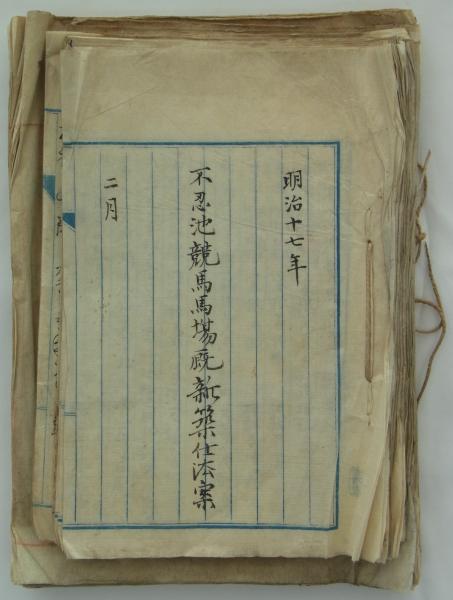 明治十七年
不忍池競馬馬場厩新築仕法案
二月